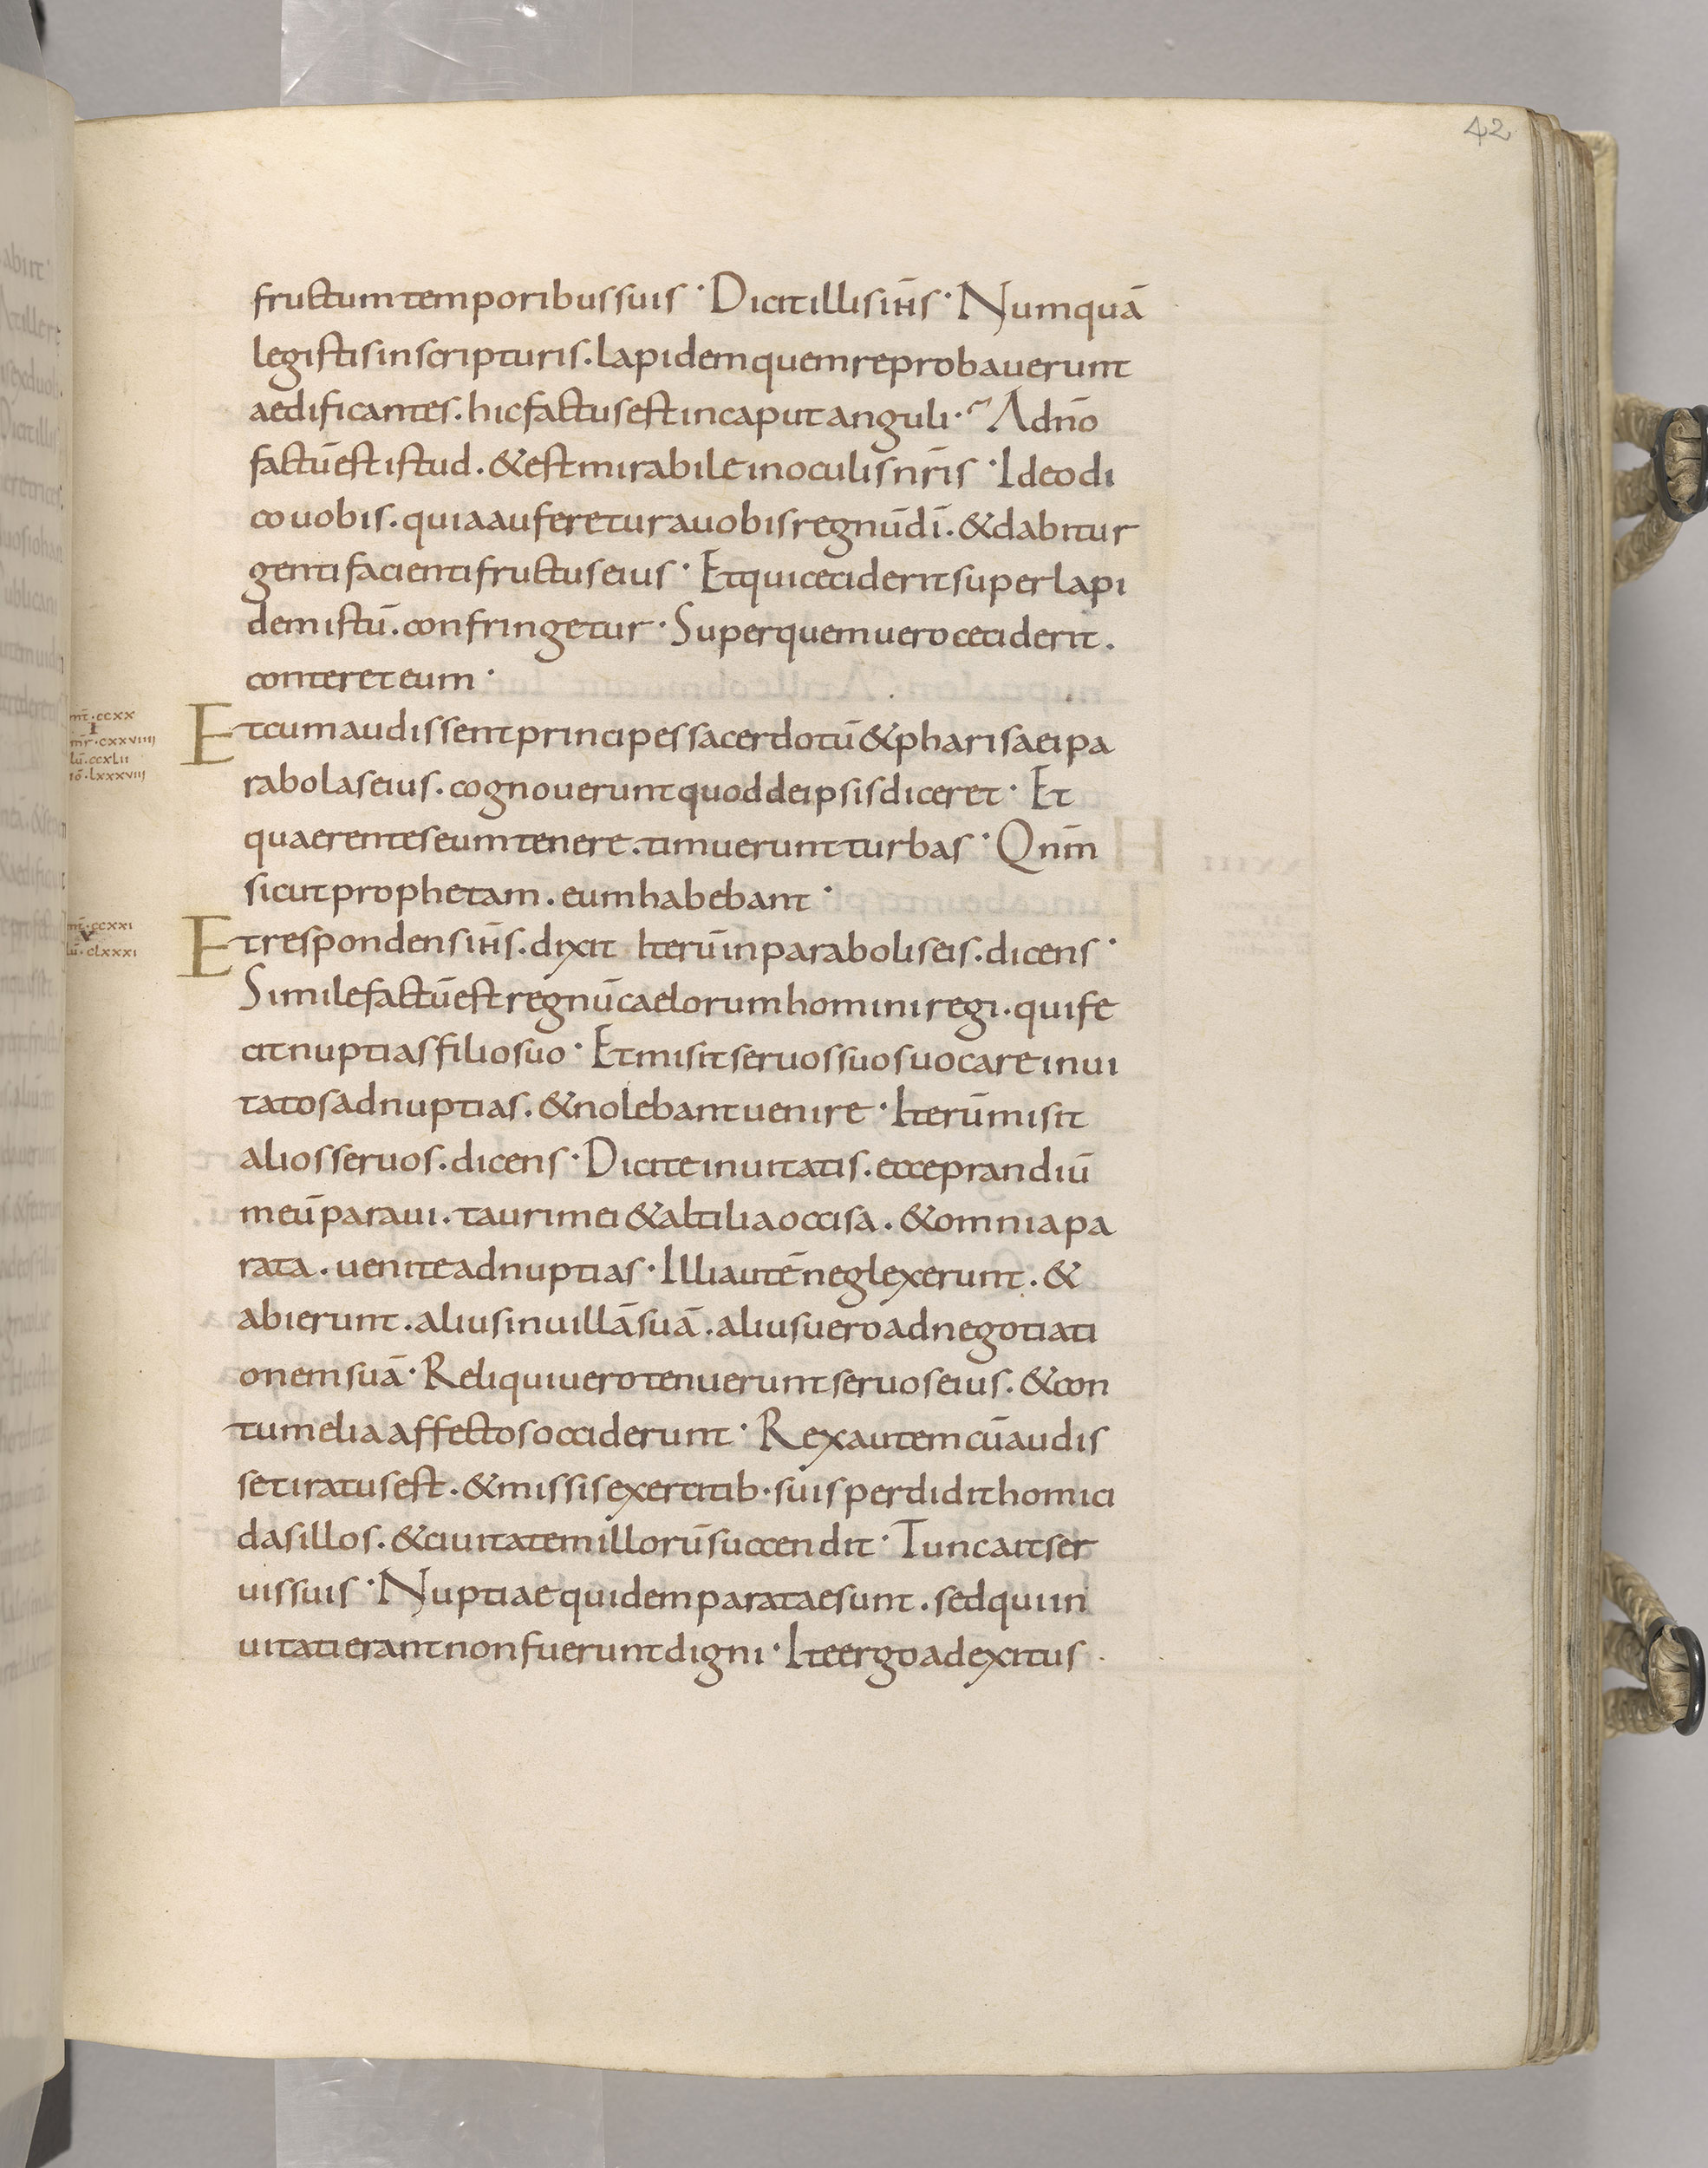 42
fructum temporibus suis · Dicit illis ihs · Numquā
legistis in scripturis . lapidem quem reprobauerunt
aedificantes . hic factus est in caput anguli · Adnō
factū est istud . & est mirabile in oculis nr̄is · Ideo di
co uobis . quia auferetur a uobis regnū dī . & dabitur
genti facienti fructus eius · Et qui ceciderit super lapi
dem istū . confringetur · Super quem uero ceciderit .
conteret eum ·
mt̄ · ccxx
I
mr̄ · cxxviiii
lū · ccxlii
iō · lxxxviii
Et cum audissent principes sacerdotū & pharisaei pa
rabolas eius . cognouerunt quod de ipsis diceret · Et
quaerentes eum tenere . timuerunt turbas · Qnm̄
sicut prophetam . eum habebant ·
mt̄ · ccxxi
V
lū · clxxxi
Et respondens ihs̄ . dixit Iterū in parabolis eis . dicens ·
Simile factū est regnū caelorum homini regi . qui fe
cit nuptias filio suo · Et misit seruos suos uocare inui
tatos ad nuptias . & nolebant uenire · Iterū misit
alios seruos . dicens · Dicite inuitatis . ecce prandiū
meū paraui . tauri mei & altilia occisa . & omnia pa
rata . uenite ad nuptias · Illi autē neglexerunt . &
abierunt . alius in uillā suā . alius uero ad negotiati
onem suā · Reliqui uero tenuerunt seruos eius . & con
tumelia affectos occiderunt · Rex autem cū audis
set iratus est . & missis exercitib · suis perdidit homici
das illos . & ciuitatem illorū succendit · Tunc ait ser
uis suis · Nuptiae quidem paratae sunt . sed qui in
uitati erant non fuerunt digni · Ite ergo ad exitus